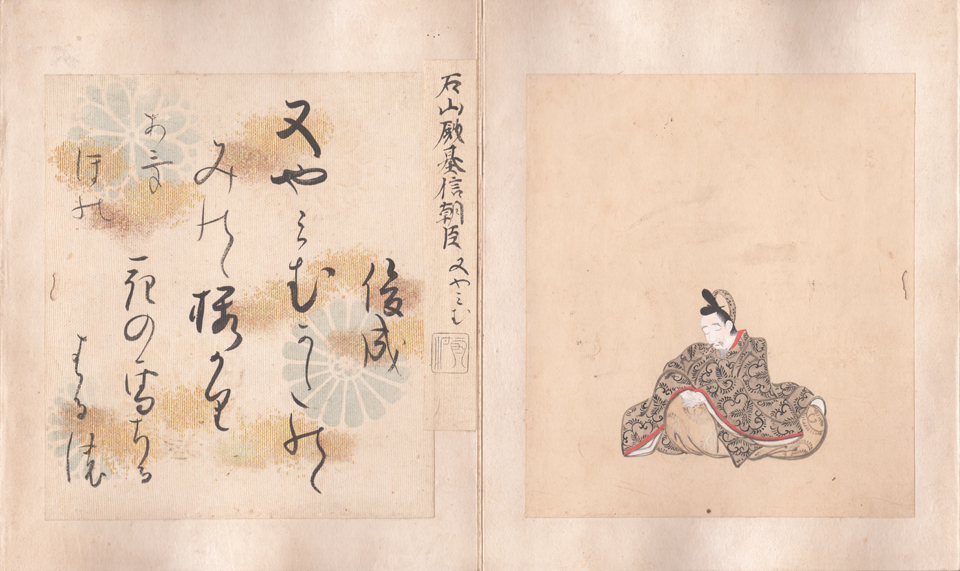 石山殿基信朝臣 又やミむ
俊成
又やミむかたのゝ
みのゝ桜かり
花の雪ちる
はるの
あけ
ほの